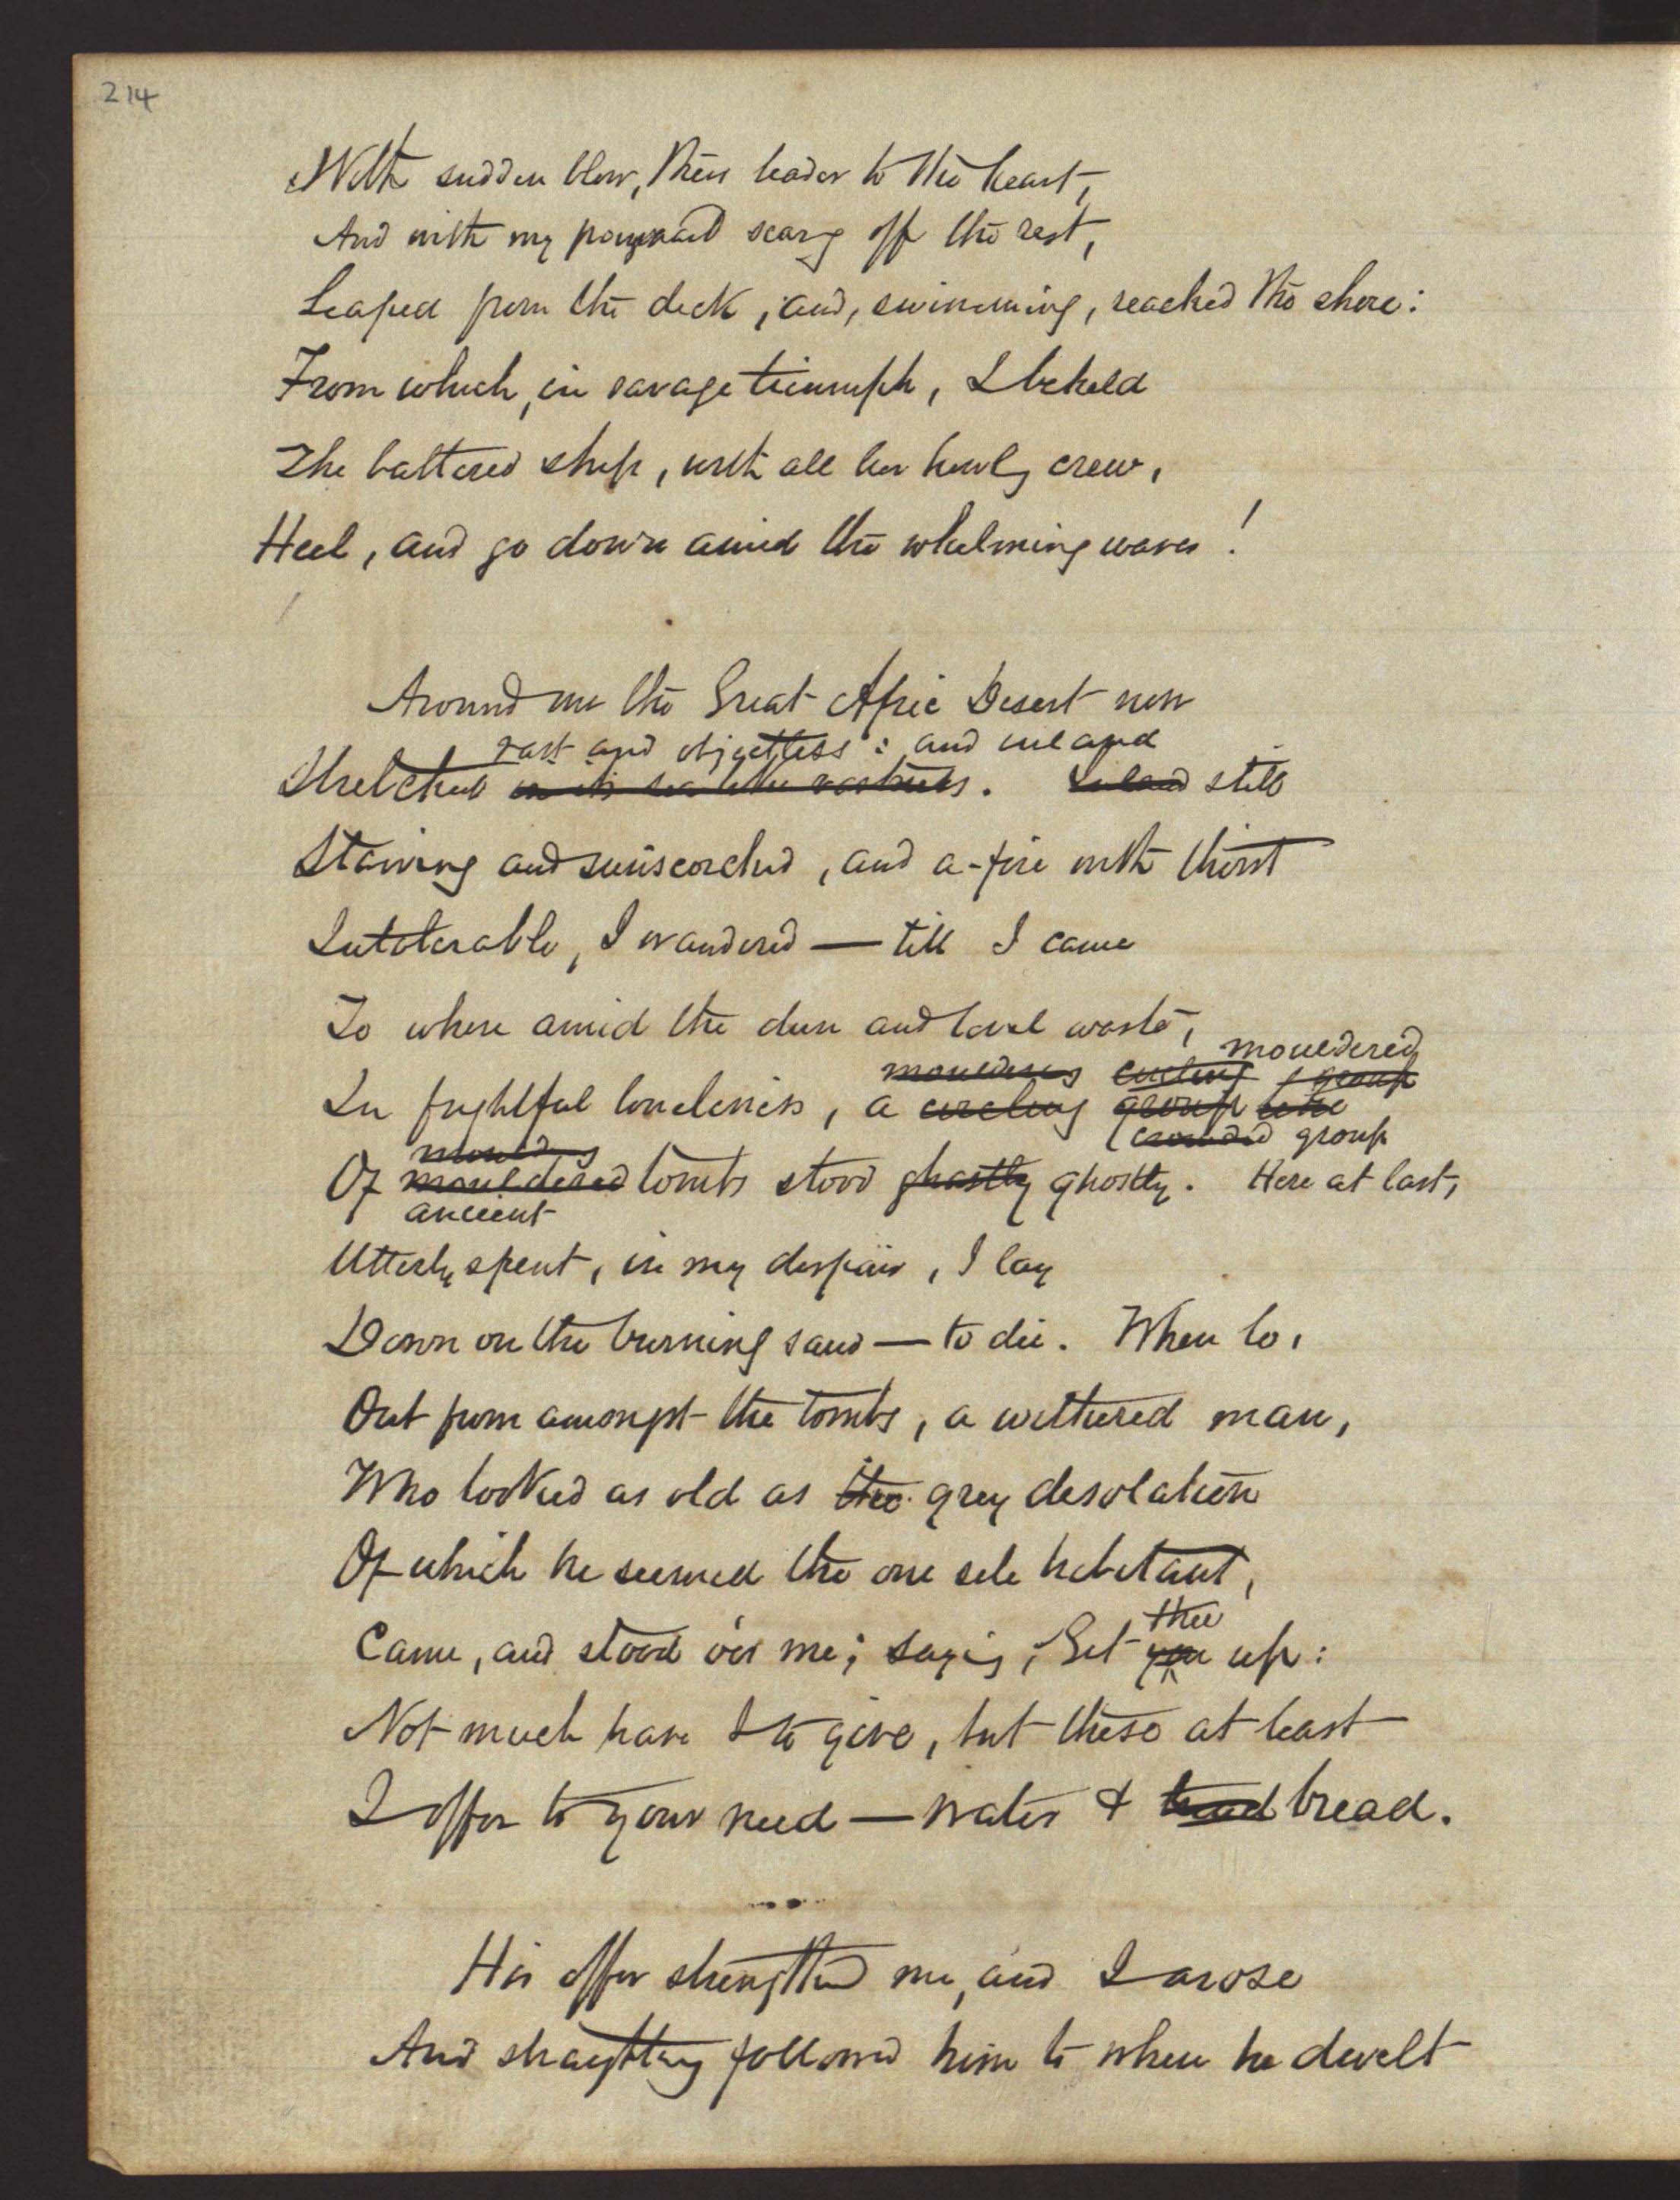 214
With sudden blow, their leader to the heart,
And with my poynard scarg off the rest,
Leaped from the deck, and, swimming, reached the shore:
From which, in savage triumph, I beheld
The battered ship, with all her howlg crew,
Heel, and go down amid the whelming waves!
Around me the Great Afric Desert now
vast and objectless: and inland
Stretched in its sea like vastness. Inland still
Starving and sunscorched, and a-fire with thirst
Intolerable, I wandered — till I came
To where amid the dun and level waste,
mouldered
mouldering circling group
In frightful loneliness, a circling group
crowded group
mouldering
Of mouldered tombs stood ghastly ghostly. Here at last,
ancient
Utterly spent, in my despair, I lay
Down on the burning sand — to die. When lo,
Out from amongst the tombs, a withered man,
Who looked as old as the grey desolation
Of which he seemed the one sole habitant,
thee
Came, and stood o'er me; sayig, Get you up:
Not much have I to give, but these at least
I offer to your need — water & bread bread.
His offer strengthd me, and I arose
And straightway followed him to where he dwelt